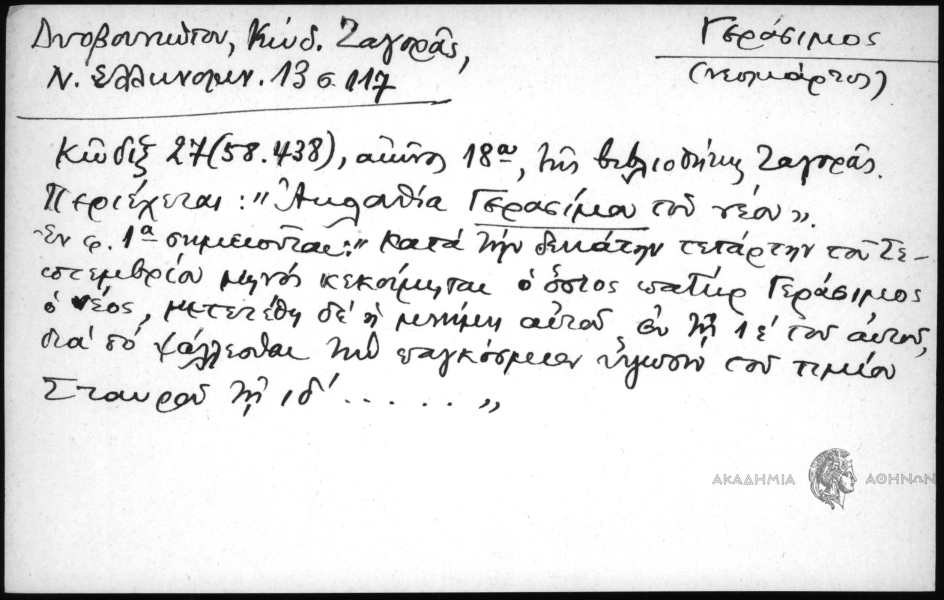 Δυοβουνιώτου, Κώδ. Ζαγορᾶς,
Ν. Ἑλληνομν. 13 σ. 117
Γεράσιμος
(νεομάρτυς)
Κῶδιξ 27 (58.438), αἰῶνος 18ου, τῆς βιβλιοθήκης Ζαγορᾶς.
Περιέχεται: "Ἀκολουθία Γερασίμου τοῦ νέου".
Ἐν φ. 1α σημειοῦται: "Κατὰ τὴν δεκάτην τετάρτην τοῦ Σε-
πτεμβρίου μηνός κεκοίμηται ὁ ὅσιος πατὴρ Γεράσιμος
ὁ νέος, μετετέθη δέ ἡ μνήμη αὐτοῦ ἐν τῇ ιε΄ τοῦ αὐτοῦ,
διά τό ψάλλεσθαι τὴν παγκόσμιον ὕψωσιν τοῦ τιμίου
Σταυροῦ τῇ ιδ΄ . . . . . . "
ΑΚΑΔΗΜΙΑ ΑΘΗΝΩΝ